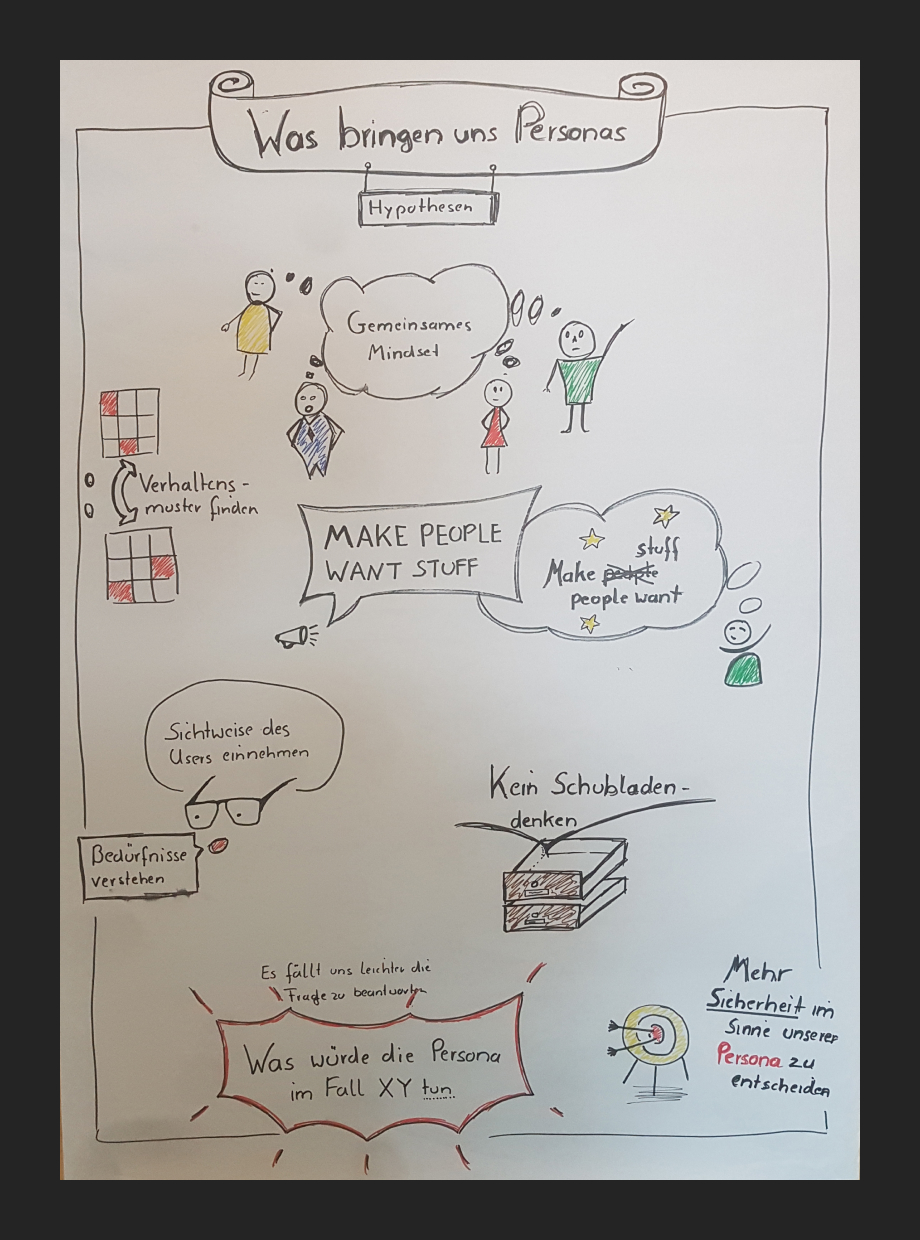 Was bringen uns Personas
Hypothesen
Gemeinsames
Mindset
Verhaltens-
muster finden
MAKE PEOPLE
WANT STUFF
stuff
Make people
people want
Sichtweise des
Users einnehmen
Bedürfnisse
verstehen
Kein Schubladen-
denken
Es fällt uns leichter die
Frage zu beantworten
Was würde die Persona
im Fall XY tun
Mehr
Sicherheit im
Sinne unserer
Persona zu
entscheiden